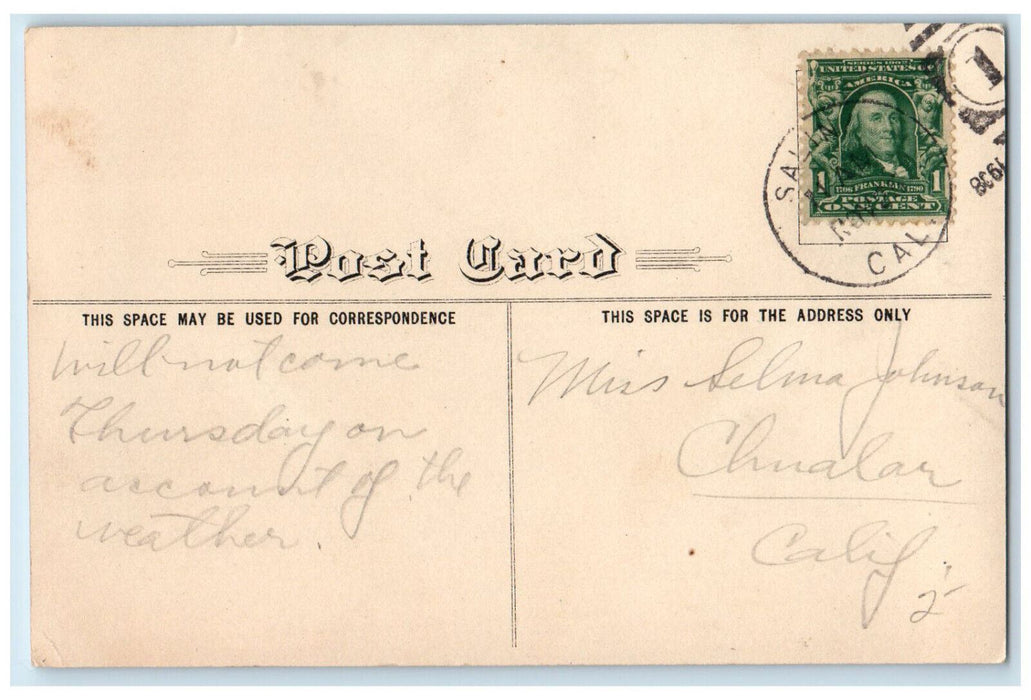 SERIES 1902
UNITED STATES OF
AMERICA
1706 FRANKLIN 1790
1 POSTAGE 1
ONE CENT
SALINAS
CAL.
1
1908
Post Card
THIS SPACE MAY BE USED FOR CORRESPONDENCE
will not come
Thursday on
account of the
weather.
THIS SPACE IS FOR THE ADDRESS ONLY
Miss Selma Johnson
Chualar
Calif
2